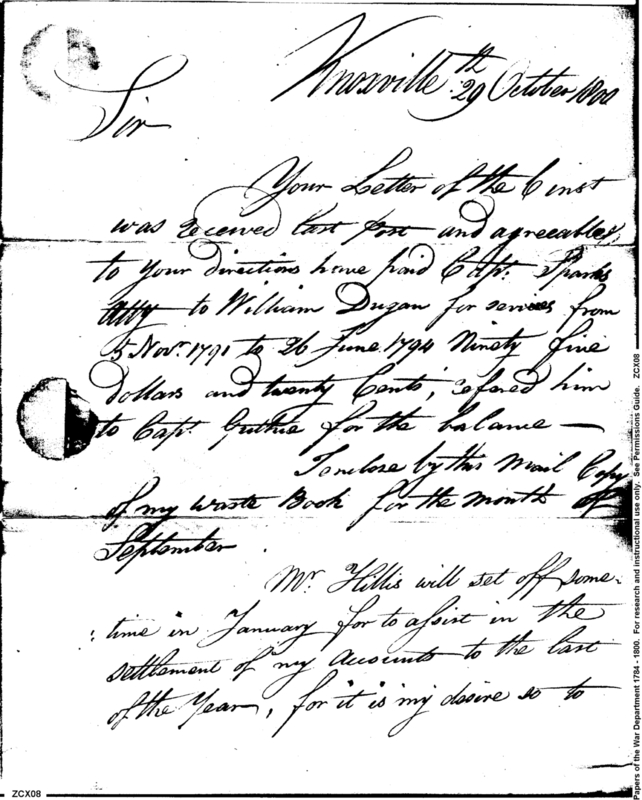 Knoxville 29th October 1800
Sir
Your Letter of the 6 inst
was received last post and agreeably
to your directions have paid Capt. Sparks
Atty to William Dugan for services from
5 Novr. 1791 to 26 June 1794 Ninety five
dollars and twenty Cents, refered him
to Capt. Guthrie for the balance —
I enclose by this Mail Copy
of my Waste Book for the Month of
September
Mr. Hillis will set off some-
time in January for to assist in the
settlement of my Accounts to the last
of the Year, for it is my desire so to
ZCX08
Papers of the War Department 1784 - 1800. For research and instructional use only. See Permissions Guide. ZCX08